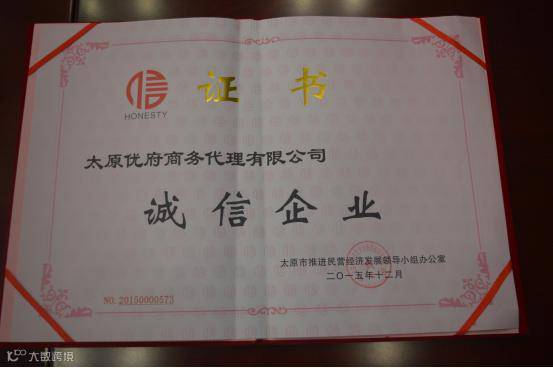 证书
HONESTY
太原优府商务代理有限公司
诚信企业
太原市推进民营经济发展领导小组办公室
二〇一五年十二月
NO. 20150000573
大数跨境